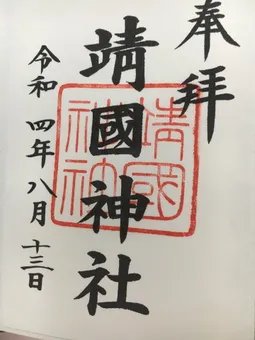 奉拝
靖國神社
靖國神社
令和四年八月十三日